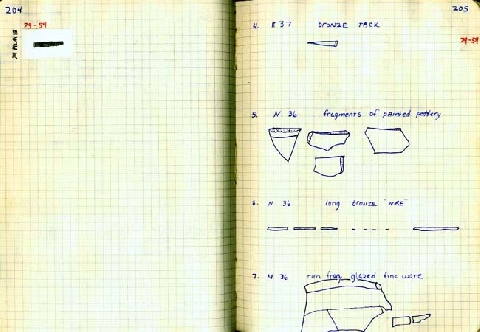 204
79-59
205
4. K 37 bronze tack
79-59
5. N 36 fragments of painted pottery
6. N 36 long bronze "wire"
7. N 36 rim frag glazed fine ware